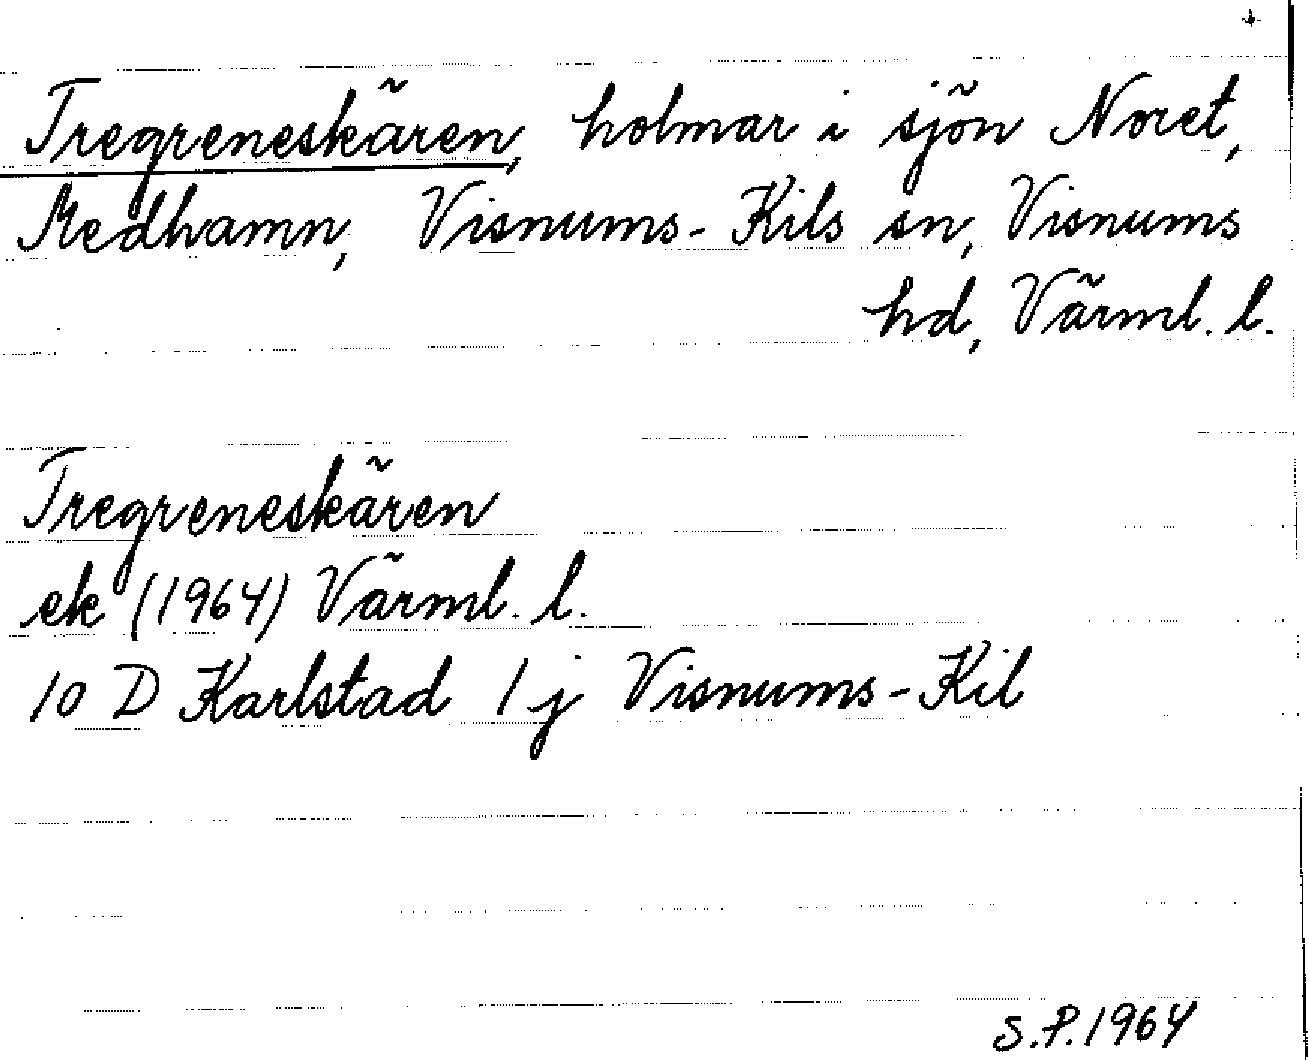 Tregreneskären, holmar i sjön Noret,
Medhamn, Visnums-Kils sn, Visnums
hd, Värml. l.
Tregreneskären
ek (1964) Värml. l.
10 D Karlstad 1 j Visnums-Kil
S.P. 1964